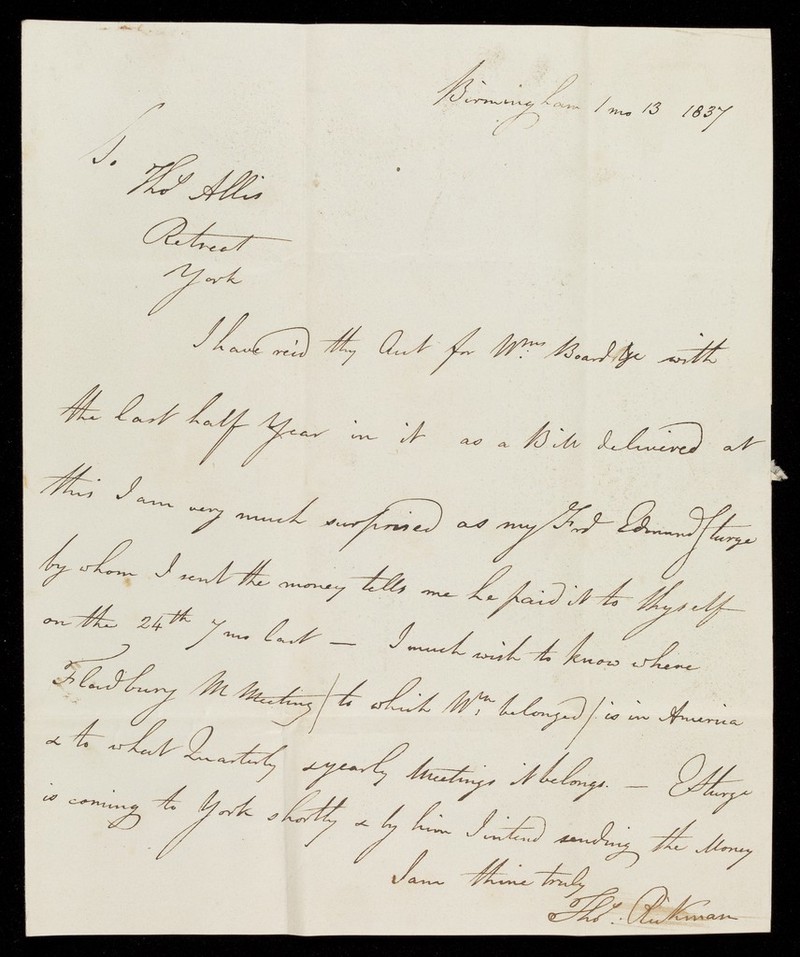 Birmingham 1 mo 13 1837
To
Thos Allis
Retreat
York
I have rec'd thy Acct for Wms Board &c with
the last half Year in it as a Bill delivered at
this I am very much surprised as my Frd Edmund Sturge
by whom I sent the money tells me he paid it to thyself
on the 24th 7 mo last — I much wish to know where
Fladbury M Meeting / to which Wm belonged / is in America
& to what Quarterly & yearly Meetings it belongs. — E Sturge
is coming to York shortly & by him I intend sending the Money
I am thine truly
Thos. Rickman